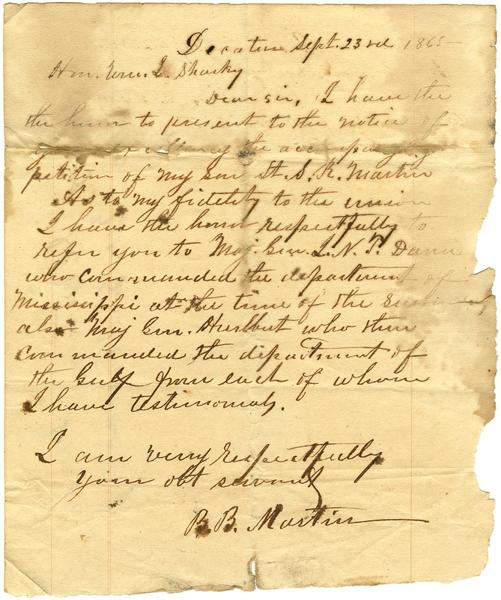 Decatur Sept. 23rd 1865
Hon. Wm. L. Sharky
Dear sir, I have the
the honor to present to the notice of
your excellency the accompanying
petition of my son St. S. R. Martin
As to my fidelity to the union
I have the honor respectfully to
refer you to Maj. Gen. L. N. T. Dana
who commanded the department of
Mississippi at the time of the
also Maj Gen. Hurlbut who then
commanded the department of
the Gulf from each of whom
I have testimonials.
I am very respectfully
your obt servant
B. B. Martin